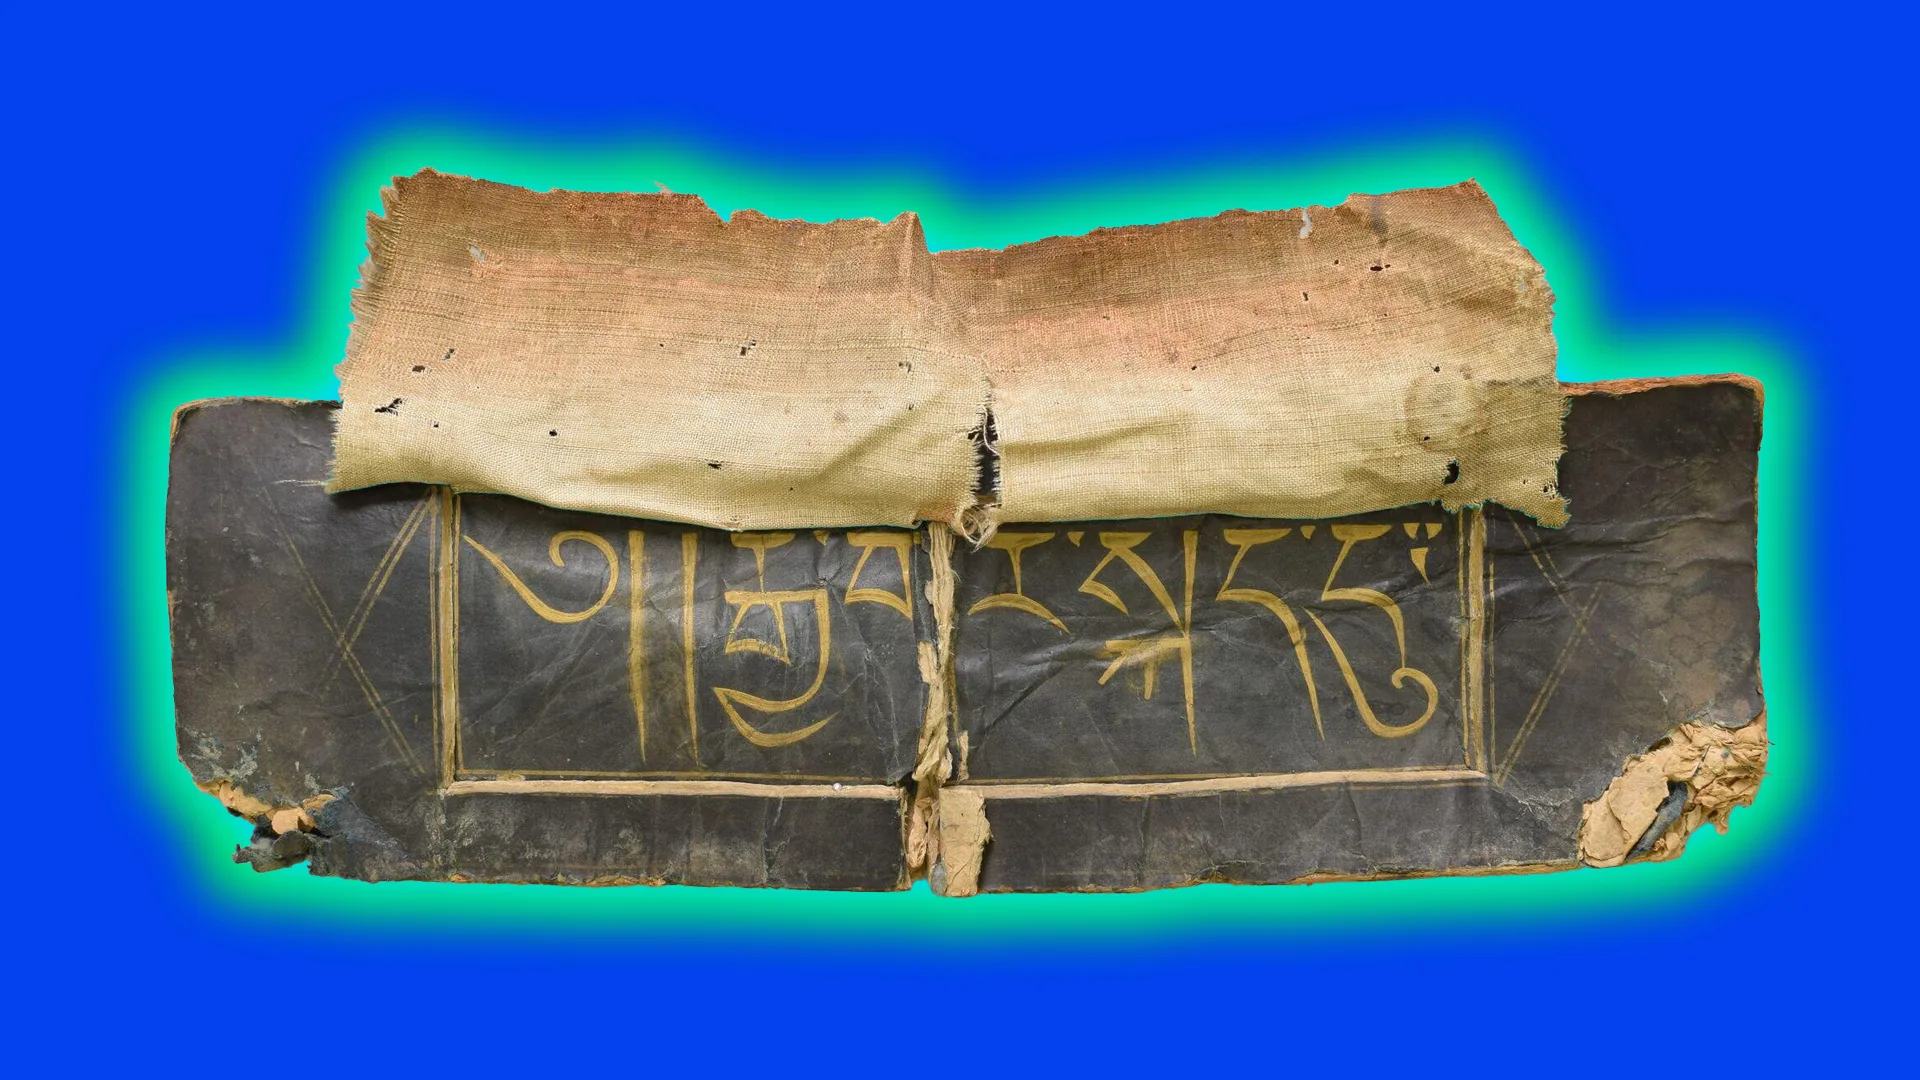 ༄།།རྒྱ་གར་སྐད་དུ༔